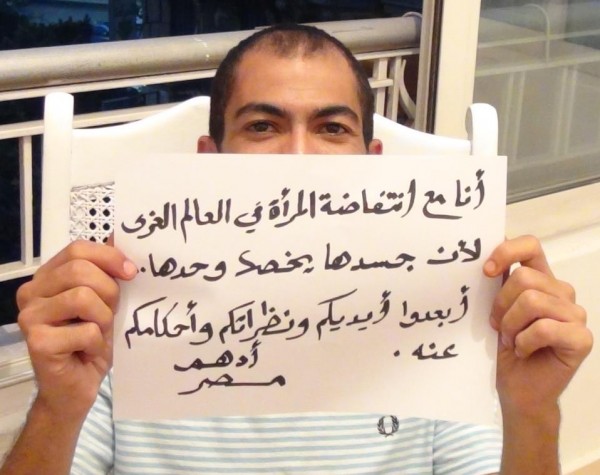 أنا مع انتفاضة المرأة في العالم العربي
لأن جسدها يخصها وحدها.
أبعدوا أيديكم ونظراتكم وأحكامكم
عنه.
أدهم
مصر